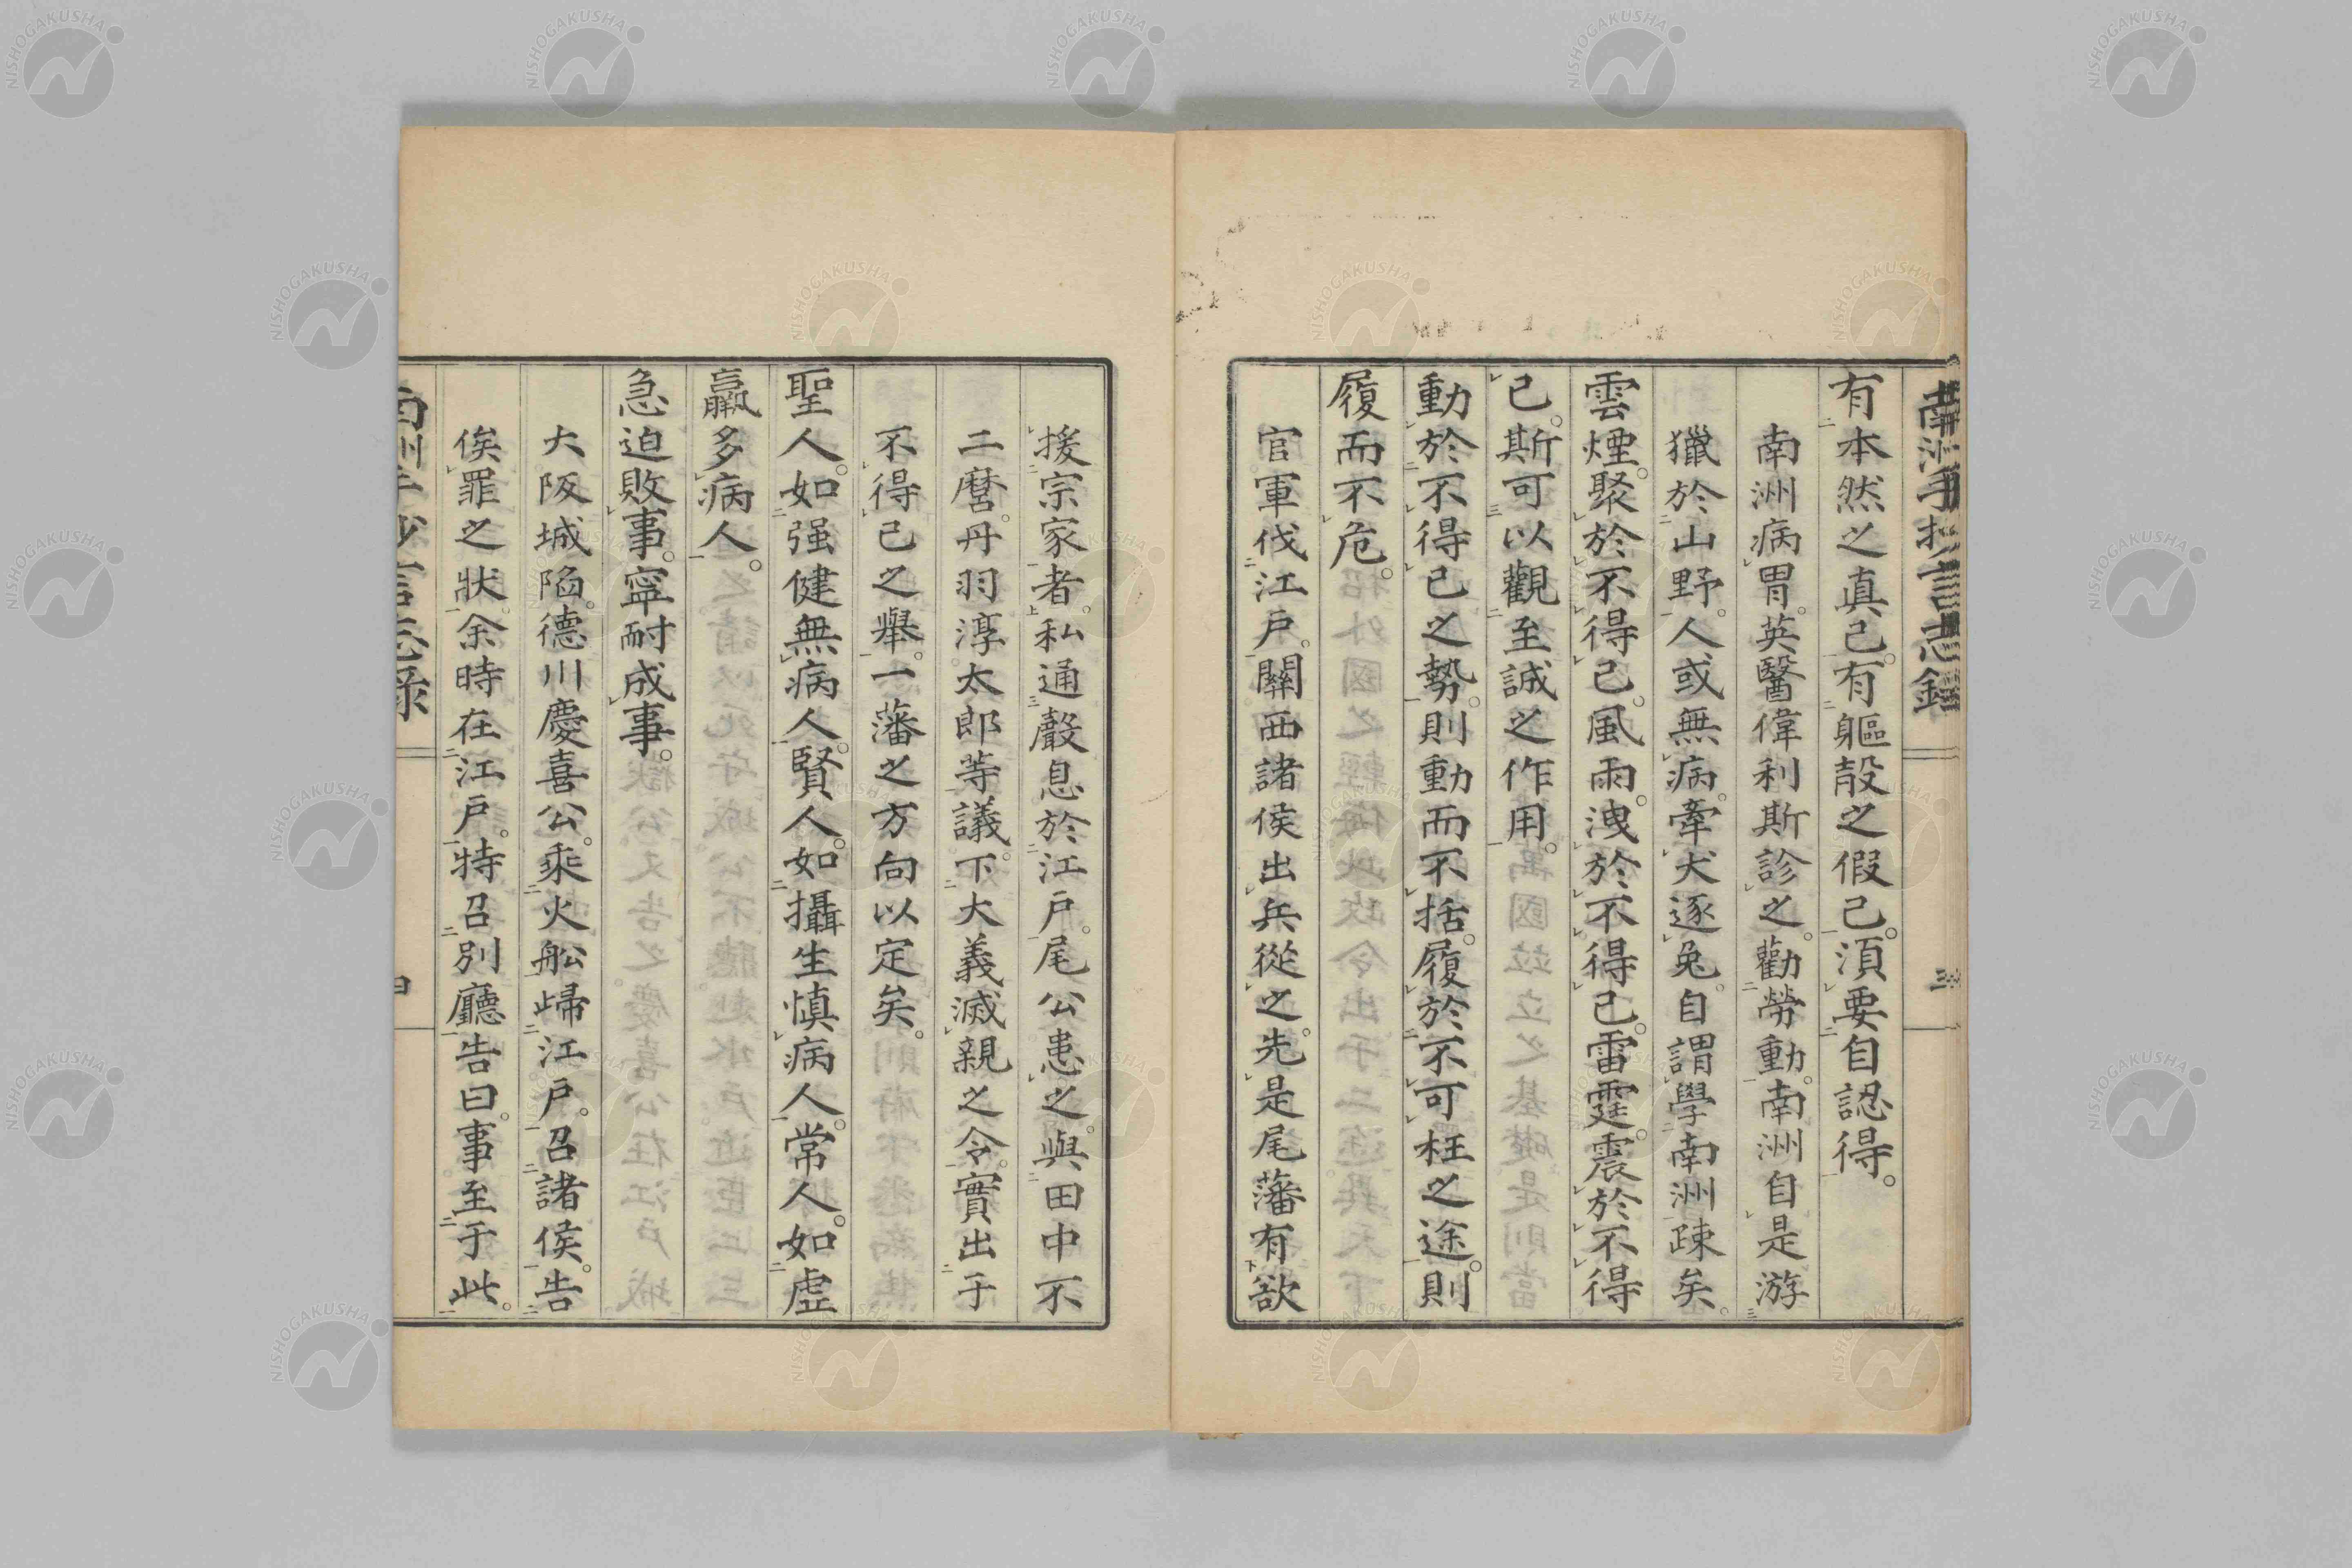 有本然之真己。有軀殼之假己。須要自認得。
南洲病胃。英醫偉利斯診之。勸勞動。南洲自是游
獵於山野。人或無病。牽犬逐兔。自謂學南洲疎矣。
雲煙。聚於不得已。風雨。洩於不得已。雷霆。震於不得
已。斯可以觀至誠之作用。
動於不得已之勢。則動而不括。履於不可枉之途。則
履而不危。
官軍伐江戶。關西諸侯出兵從之。先是尾藩有欲
援宗家者。私通聲息於江戶。尾公患之。與田中不
二麿。丹羽淳太郎等議。下大義滅親之令。實出于
不得已之舉。一藩之方向以定矣。
聖人。如强健無病人。賢人。如攝生慎病人。常人。如虛
羸多病人。
急迫敗事。寧耐成事。
大阪城陷。德川慶喜公。乘火船歸江戶。召諸侯。告
俟罪之狀。余時在江戶。特召別廳告曰。事至于此。
南洲手抄言志錄
三
NISHOGAKUSHA